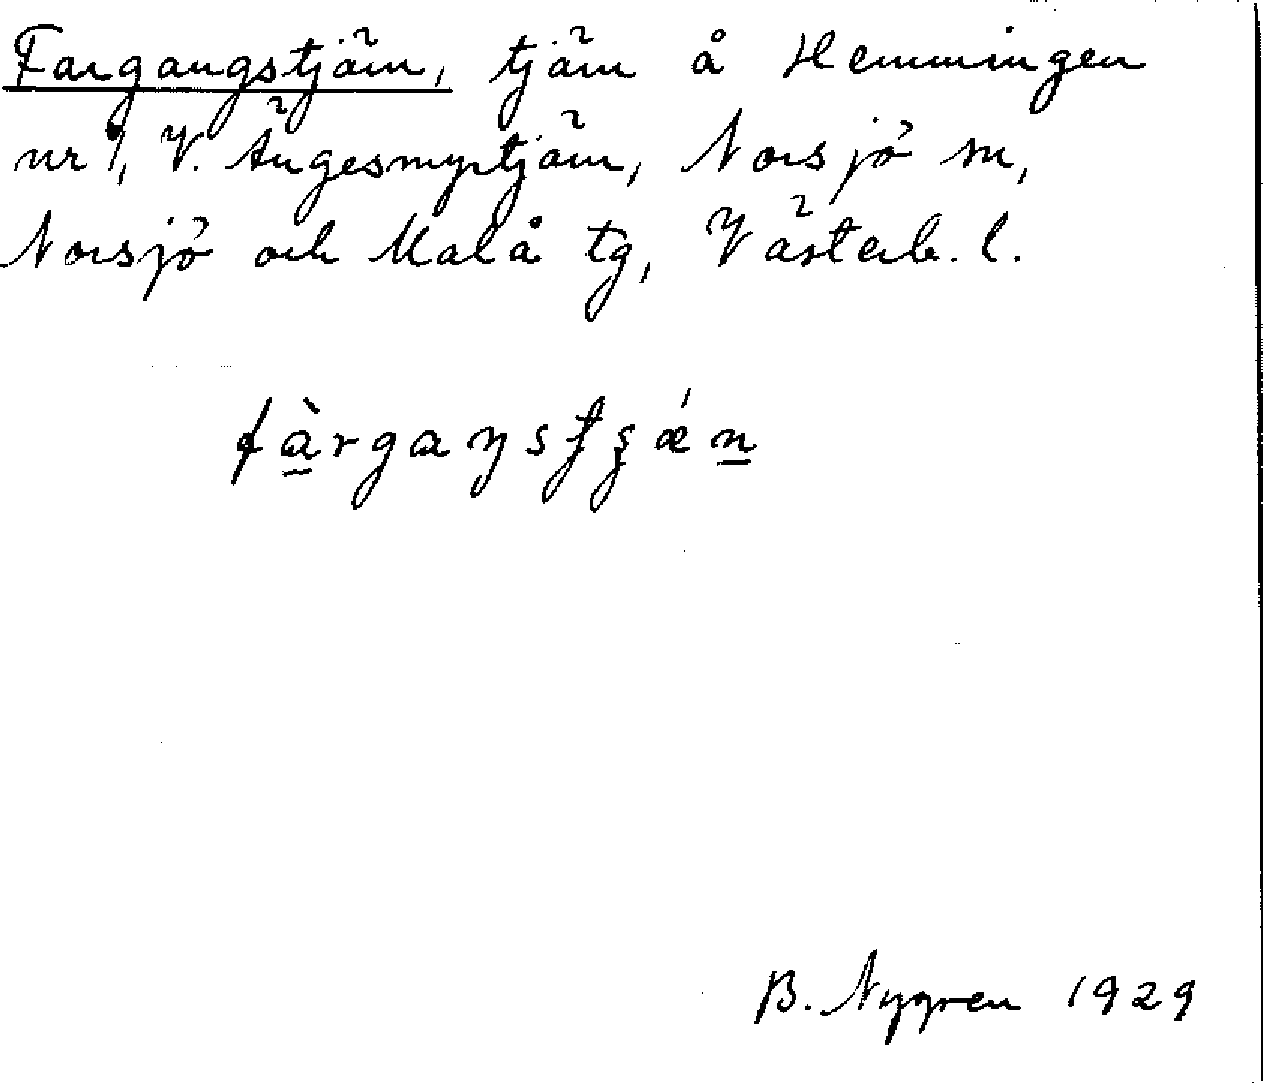 Fargangstjärn, tjärn å Hemmingen
nr 1, V. Ängesmyrtjärn, Norsjö sn,
Norsjö och Malå tg, Västerb. l.
fàrgaŋstʂǽn
B. Nygren 1929